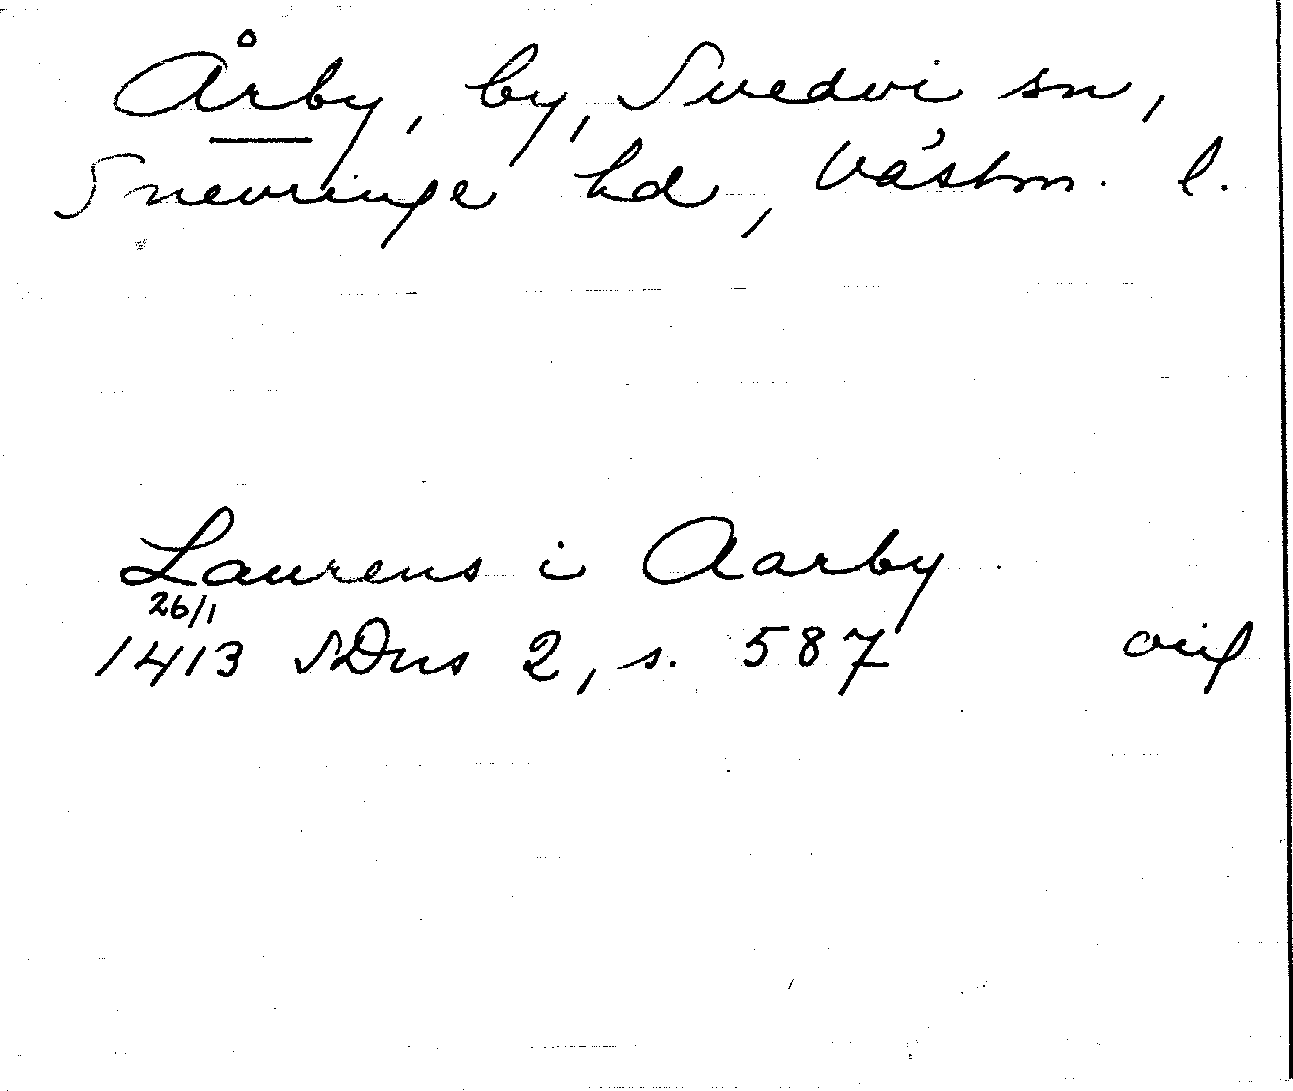 Årby, by, Svedvi sn,
Snevringe hd, Västm. l.
Laurens i Aarby
26/1
1413 SDns 2, s. 587 orig